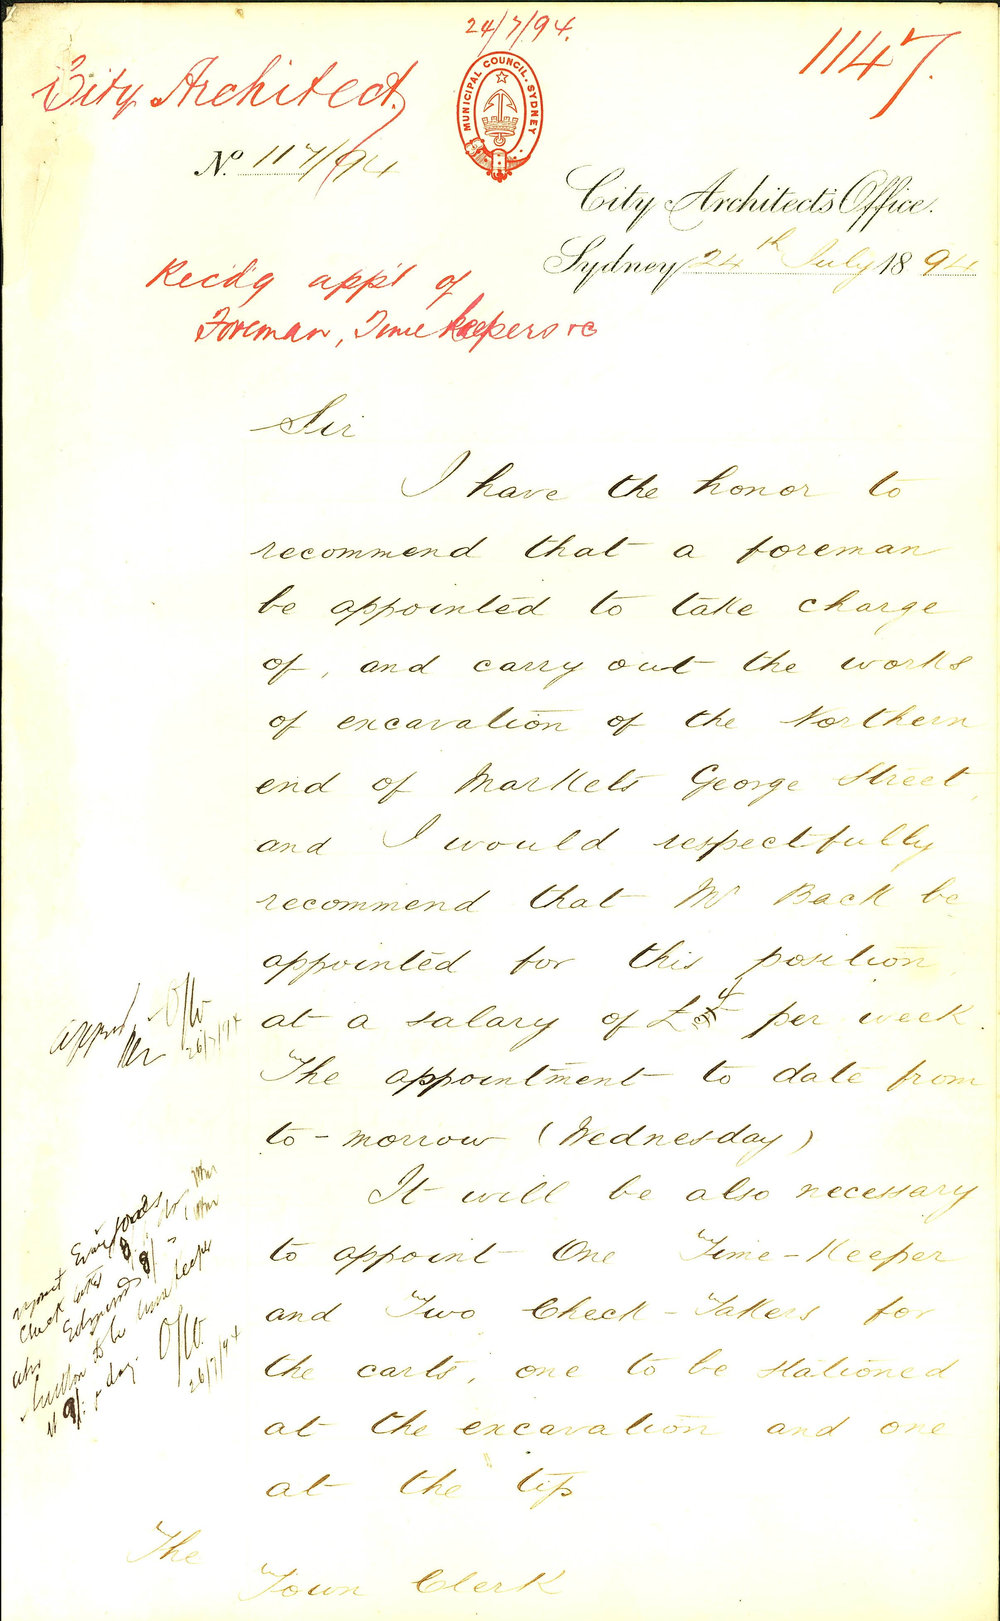 24/7/94.
1147.
City Architect,
MUNICIPAL COUNCIL. SYDNEY
No. 117/94
City Architect's Office.
Sydney 24th July 1894
Recd'g app't of
Foreman, Time keepers &c
Sir
I have the honor to
recommend that a foreman
be appointed to take charge
of, and carry out the works
of excavation of the Northern
end of Markets George Street,
and I would respectfully
recommend that Mr Back be
appointed for this position,
at a salary of £ per week.
The appointment to date from
to-morrow (Wednesday)
It will be also necessary
to appoint One Time-Keeper
and Two Check-Takers for
the carts, one to be stationed
at the excavation and one
at the tip
26/7/94
to be time keeper
day.
26/7/94
The
Town Clerk